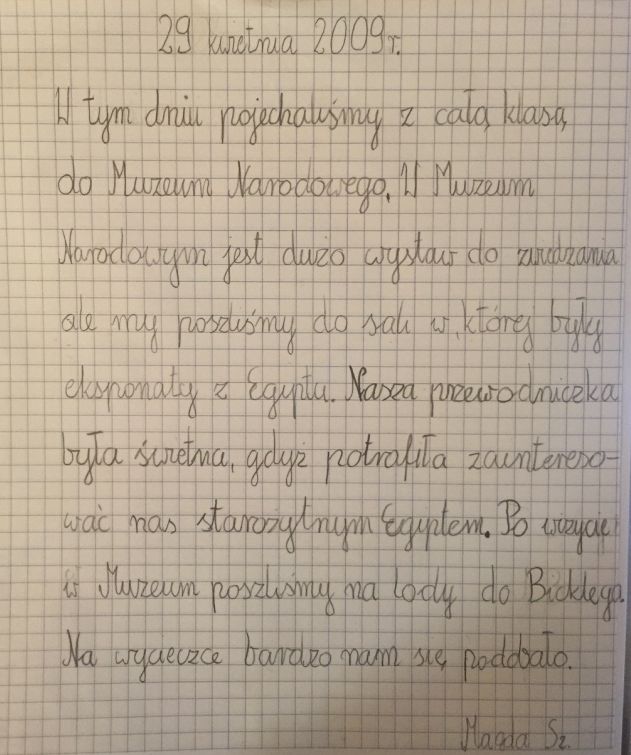 29 kwietnia 2009r.
W tym dniu pojechaliśmy z całą klasą
do Muzeum Narodowego. W Muzeum
Narodowym jest dużo wystaw do zwiedzania
ale my poszliśmy do sali w, której były
eksponaty z Egiptu. Nasza przewodniczka
była świetna, gdyż potrafiła zaintereso-
wać nas starożytnym Egiptem. Po wizycie
w Muzeum poszliśmy na lody do Bicklego.
Na wycieczce bardzo nam się podobało.
Magda Sz.